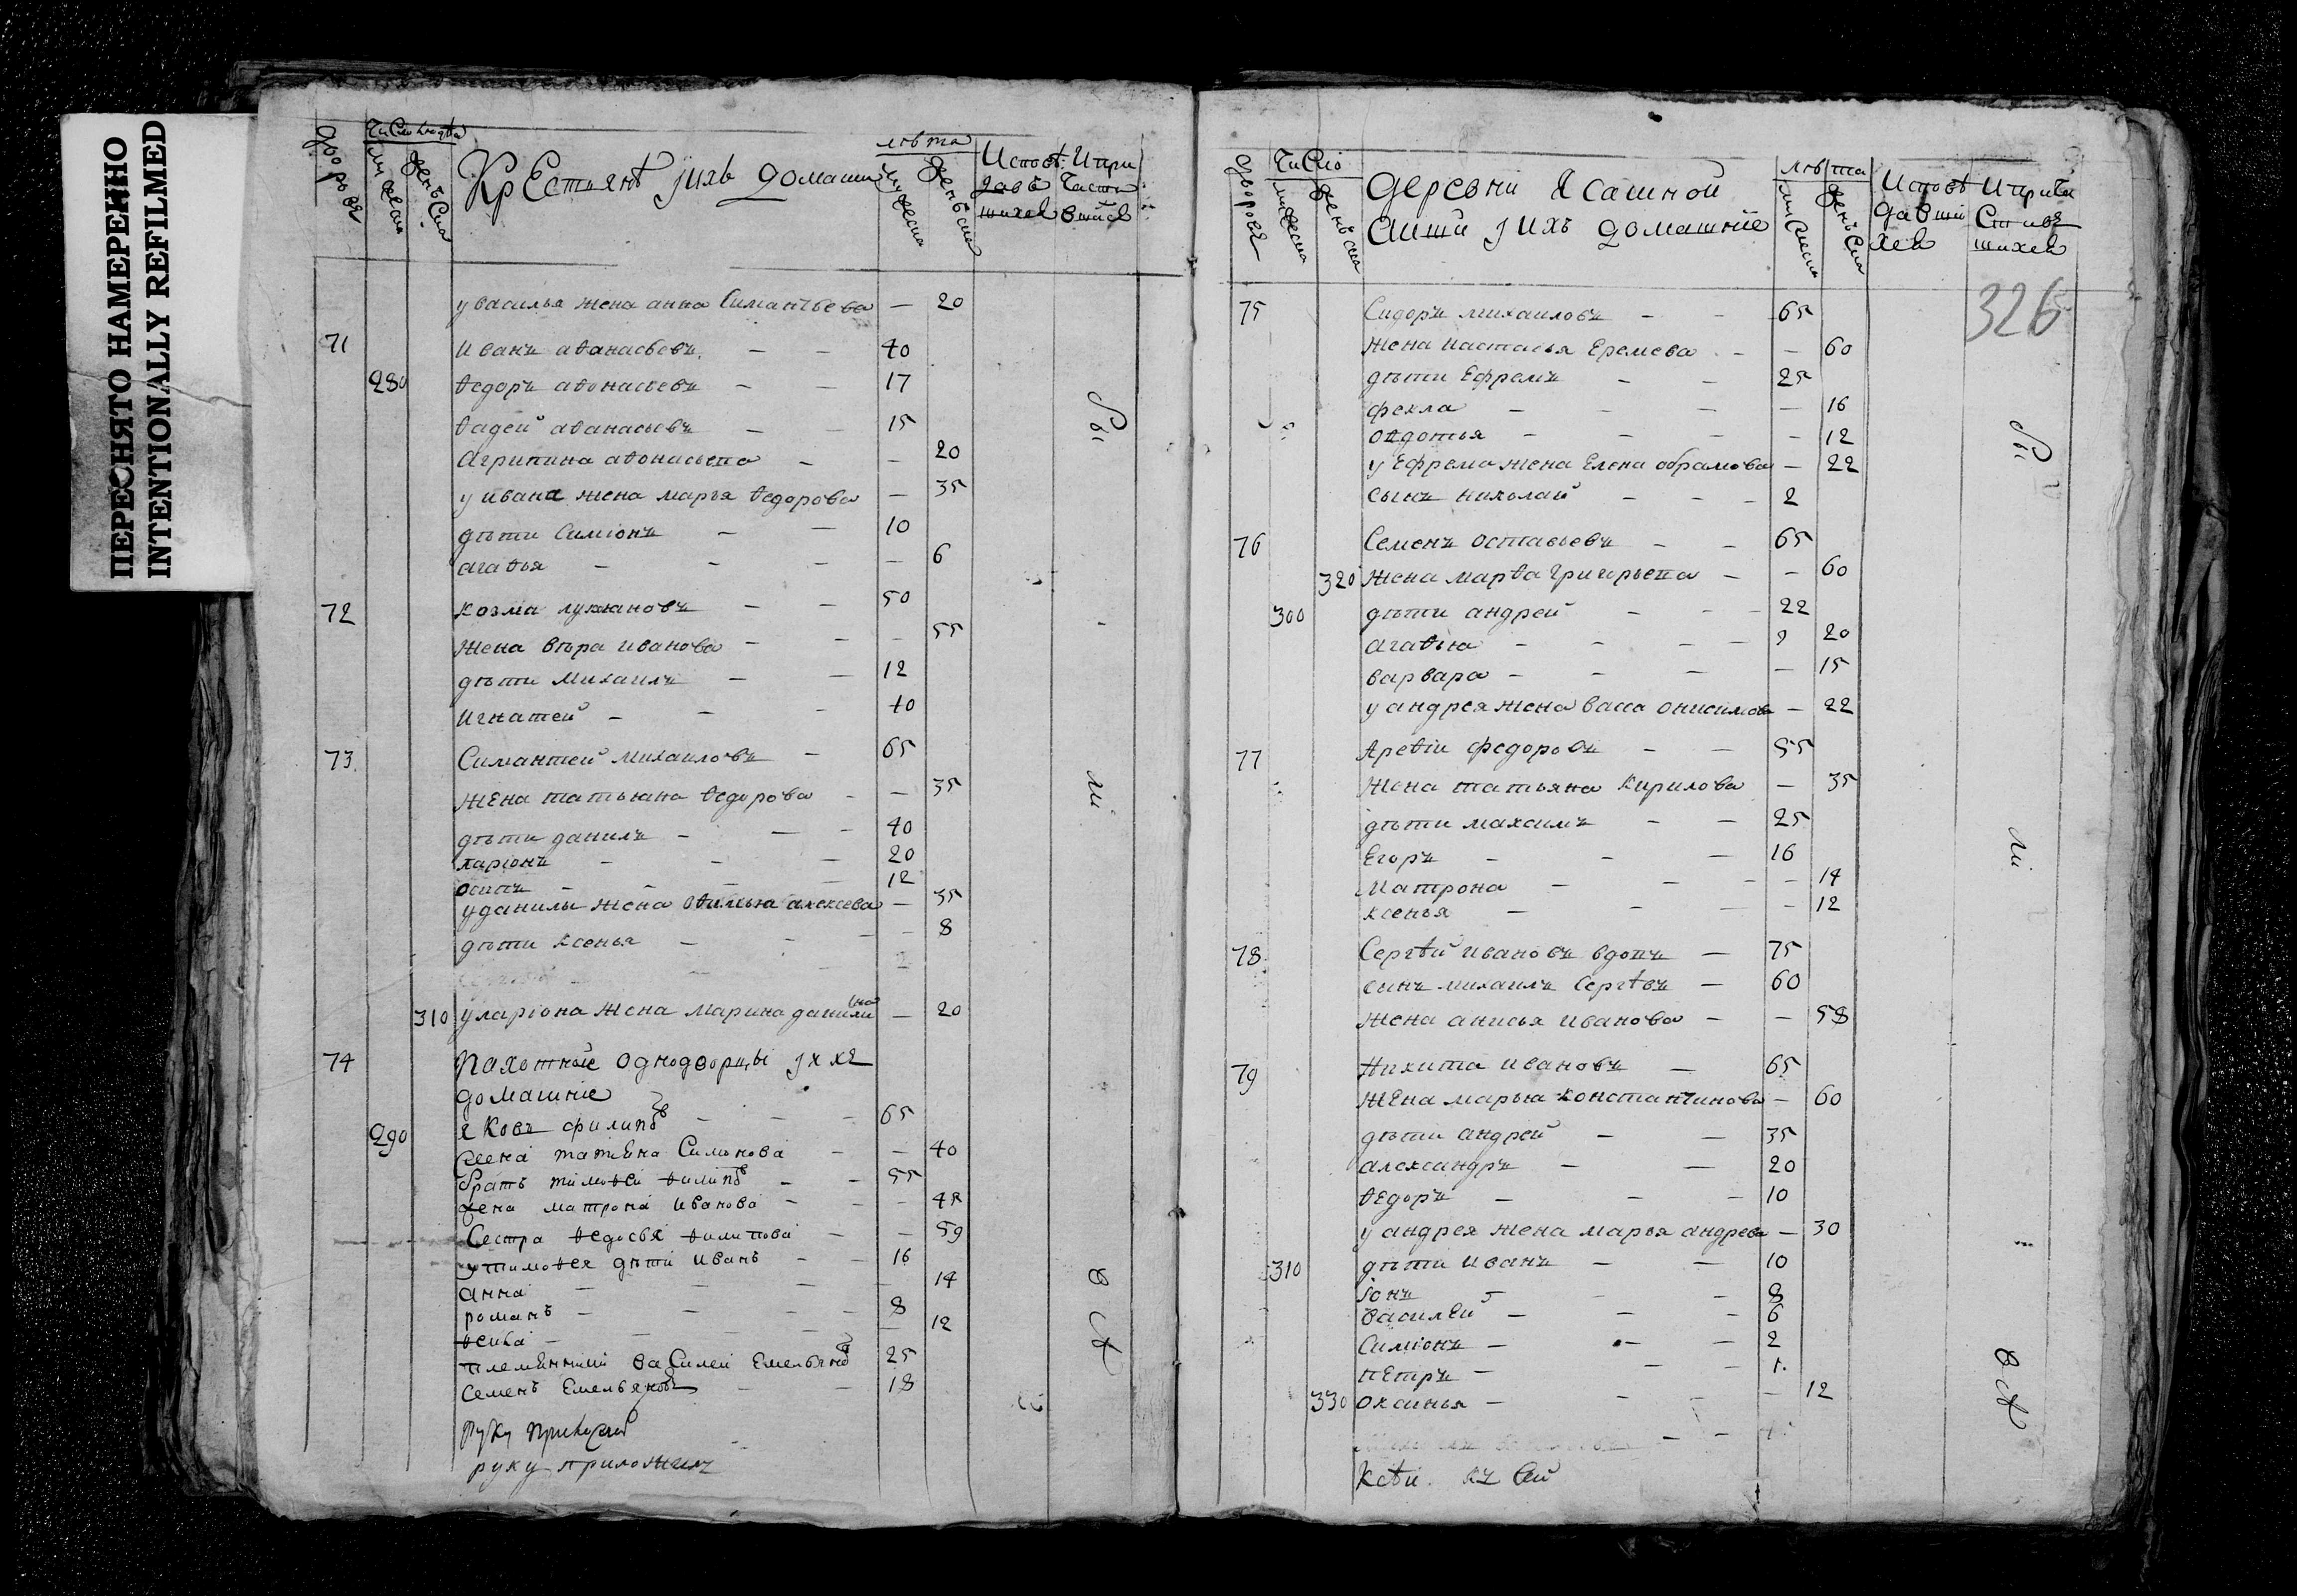 ПЕРЕСНЯТО НАМЕРЕННО
INTENTIONALLY REFILMED
дворовъ
мужеска
женъска
Крестьянѣ ихъ домашн
лѣта
мужеска
женъска
у василья жена анна Симантьева — 20
71 Иванъ аѳанасьевъ — — 40
280 ѳедоръ аѳонасьевъ — — 17
ѳадей аѳанасьевъ — — 15
Агрипина аѳонасьева — — 20
у ивана жена марья ѳедорова — 35
дѣти Симіонъ — — 10
агаѳья — — — — 6
72 козма лукьяновъ — — 50
жена вѣра иванова — — — 55
дѣти михаилъ — — 12
Игнатей — — — 10
73 Симантей михаиловъ — 65
жена татьяна ѳедорова — — 35
дѣти данилъ — — — 40
ларіонъ — — — 20
осипъ — — — — 12
у данилы жена алексева — 35
дѣти ксенья — — — — 8
310 у ларіона жена марина данилина — 20
74 Пахотные однодворцы ихъ
домашніе
290 яковъ филипов — — — 65
жена татьяна Симонова — — 40
братъ тимоѳеи ѳилипов — — 55
жена матрона иванова — — — 48
Сестра ѳедосья ѳилипова — — 59
у тимоѳея дѣти иванъ — — 16
анна — — — — 14
романъ — — — — 8
12
племянники василеи Емельянов 25
семенъ Емельяновъ — — 18
руку приложилъ
Число
дворовъ
мужеска
женъска
деревни Ясашной
ихъ домашніе
лѣта
женъска
326
75 Сидоръ михаиловъ — — 65
жена настасья Еремева — — 60
дѣти Ефремъ — — 25
фекла — — — — 16
овдотья — — — — 12
у Ефрема жена Елена обрамова — 22
сынъ николай — — — 2
76 Семенъ остаѳьевъ — — 65
320 жена марѳа григорьева — — 60
300 дѣти андрей — — — 22
агаѳья — — — — 20
варвара — — — — 15
у андрея жена васа онисимова — 22
77 Ареѳіи федоровъ — — 55
жена татьяна Кирилова — 35
дѣти максимъ — — 25
Егоръ — — — 16
Матрона — — — — 14
ксенья — — — — 12
78 Сергѣй ивановъ вдовъ — 75
сынъ михаилъ Сергѣвъ — 60
жена анисья иванова — — 58
79 Никита ивановъ — 65
жена марья константинова — 60
дѣти андрей — — 35
александръ — — 20
ѳедоръ — — — 10
у андрея жена марья андрева — 30
310 дѣти иванъ — — 10
іонъ — — 8
василей — — — 6
Симіонъ — — — 2
пЕтръ — — — 1.
330 оксинья — — — — 12